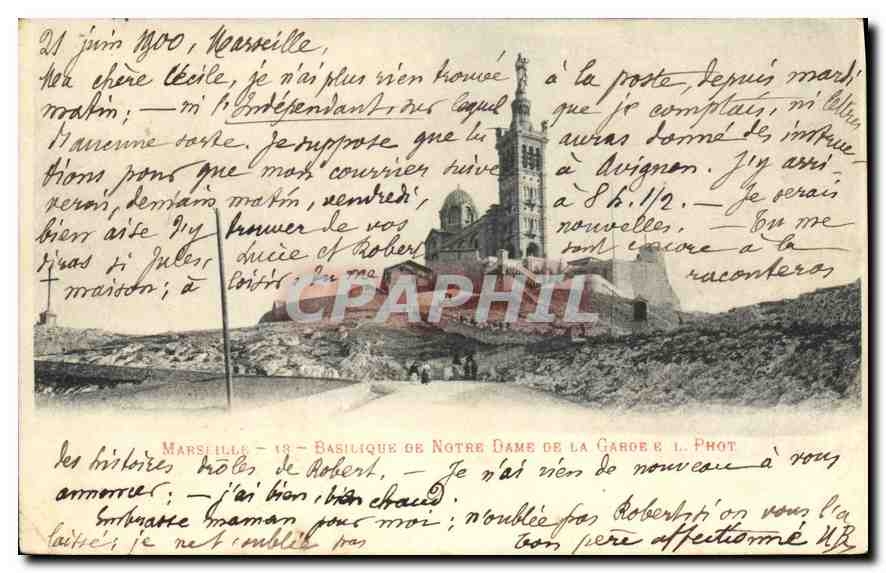 21 juin 1900, Marseille,
Ma chère Cécile, je n'ai plus rien trouvé à la poste, depuis mardi
matin; — ni l'Indépendant, sur lequel que je comptais, ni lettres
d'aucune sorte. Je suppose que tu auras donné des instruc-
tions pour que mon courrier suive à Avignon. J'y arri-
verai, demain matin, vendredi, à 8 h. 1/2. — Je serais
bien aise d'y trouver de vos nouvelles. — Tu me
diras si Jules, Lucie et Robert sont encore à la
maison; à loisir tu me raconteras
CPAPHIL
MARSEILLE - 13 - BASILIQUE DE NOTRE DAME DE LA GARDE E. L. PHOT
des histoires drôles de Robert. — Je n'ai rien de nouveau à vous
annoncer; — j'ai bien, bien chaud.
Embrasse maman pour moi; n'oublie pas Robert si on vous l'a
laissé; je ne t'oublie pas
Ton père affectionné